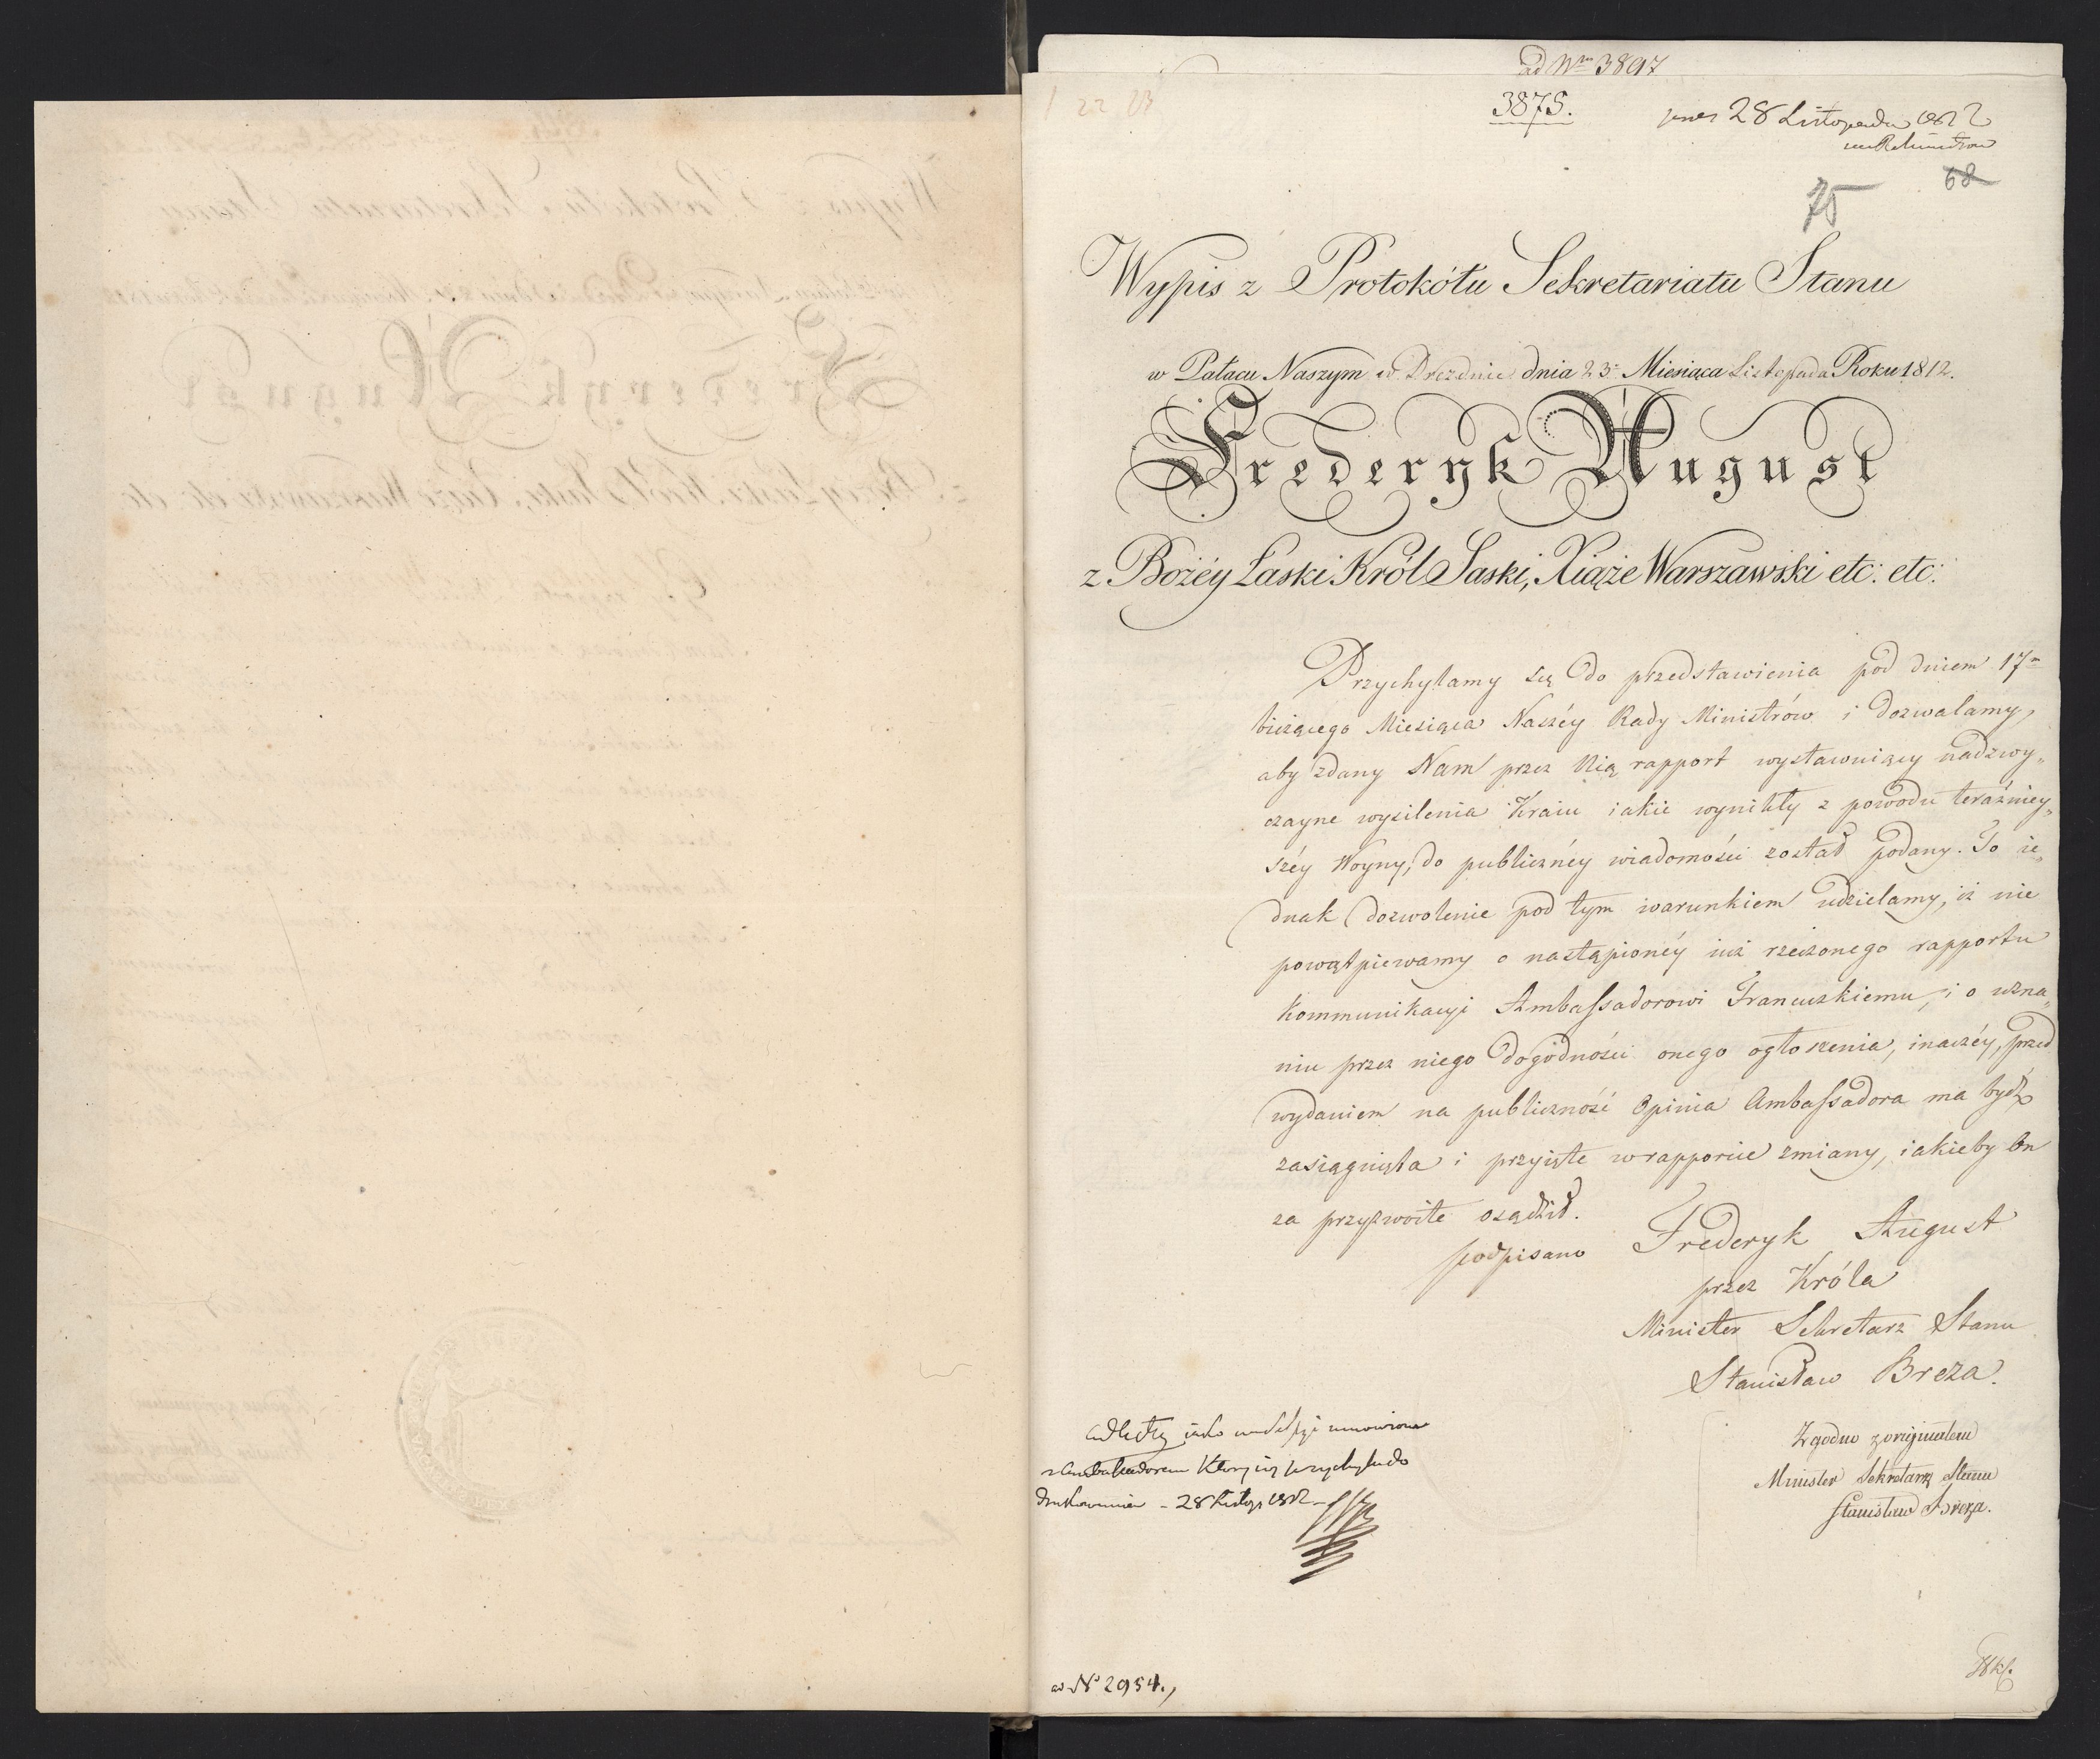 ad Nrm 3897
3875.
28 Listopada 1812
68
75
Wypis z Protokółu Sekretariatu Stanu
w Pałacu Naszym w Dreznie dnia 23 Miesiąca Listopada Roku 1812.
Frederyk August
z Bożéy Łaski Król Saski, Xiąże Warszawski etc: etc:
Przychylamy się do przedstawienia pod dniem 17m
bieżącego Miesiąca Naszéy Rady Ministrów i dozwalamy,
aby zdany Nam przez Nią rapport wystawuiący nadzwy„
czayne wysilenia Kraiu iakie wynikły z powodu teraźniey„
széy Woyny, do publicznéy wiadomości został podany. To ie„
dnak dozwolenie pod tym warunkiem udzielamy, iż nie
powątpiewamy o nastąpionéy iuż rzeczonego rapportu
kommunikacyi Ambassadorowi Francuzkiemu, i o uzna„
niu przez niego dogodności onego ogłoszenia, inaczéy, przed
wydaniem na publiczność Opinia Ambassadora ma bydź
zasiągnięta i przyięte w rapporcie zmiany, iakieby On
za przyzwoite osądził.
podpisano Frederyk August
przez Króla
Minister Sekretarz Stanu
Stanisław Breza.
Zgodno z oryginałem
Minister Sekretarz Stanu
Stanisław Breza.
iako umowione
z Ambassadorem który się przychylił do
drukowania - 28 Listop 1812
ad No 2954.,